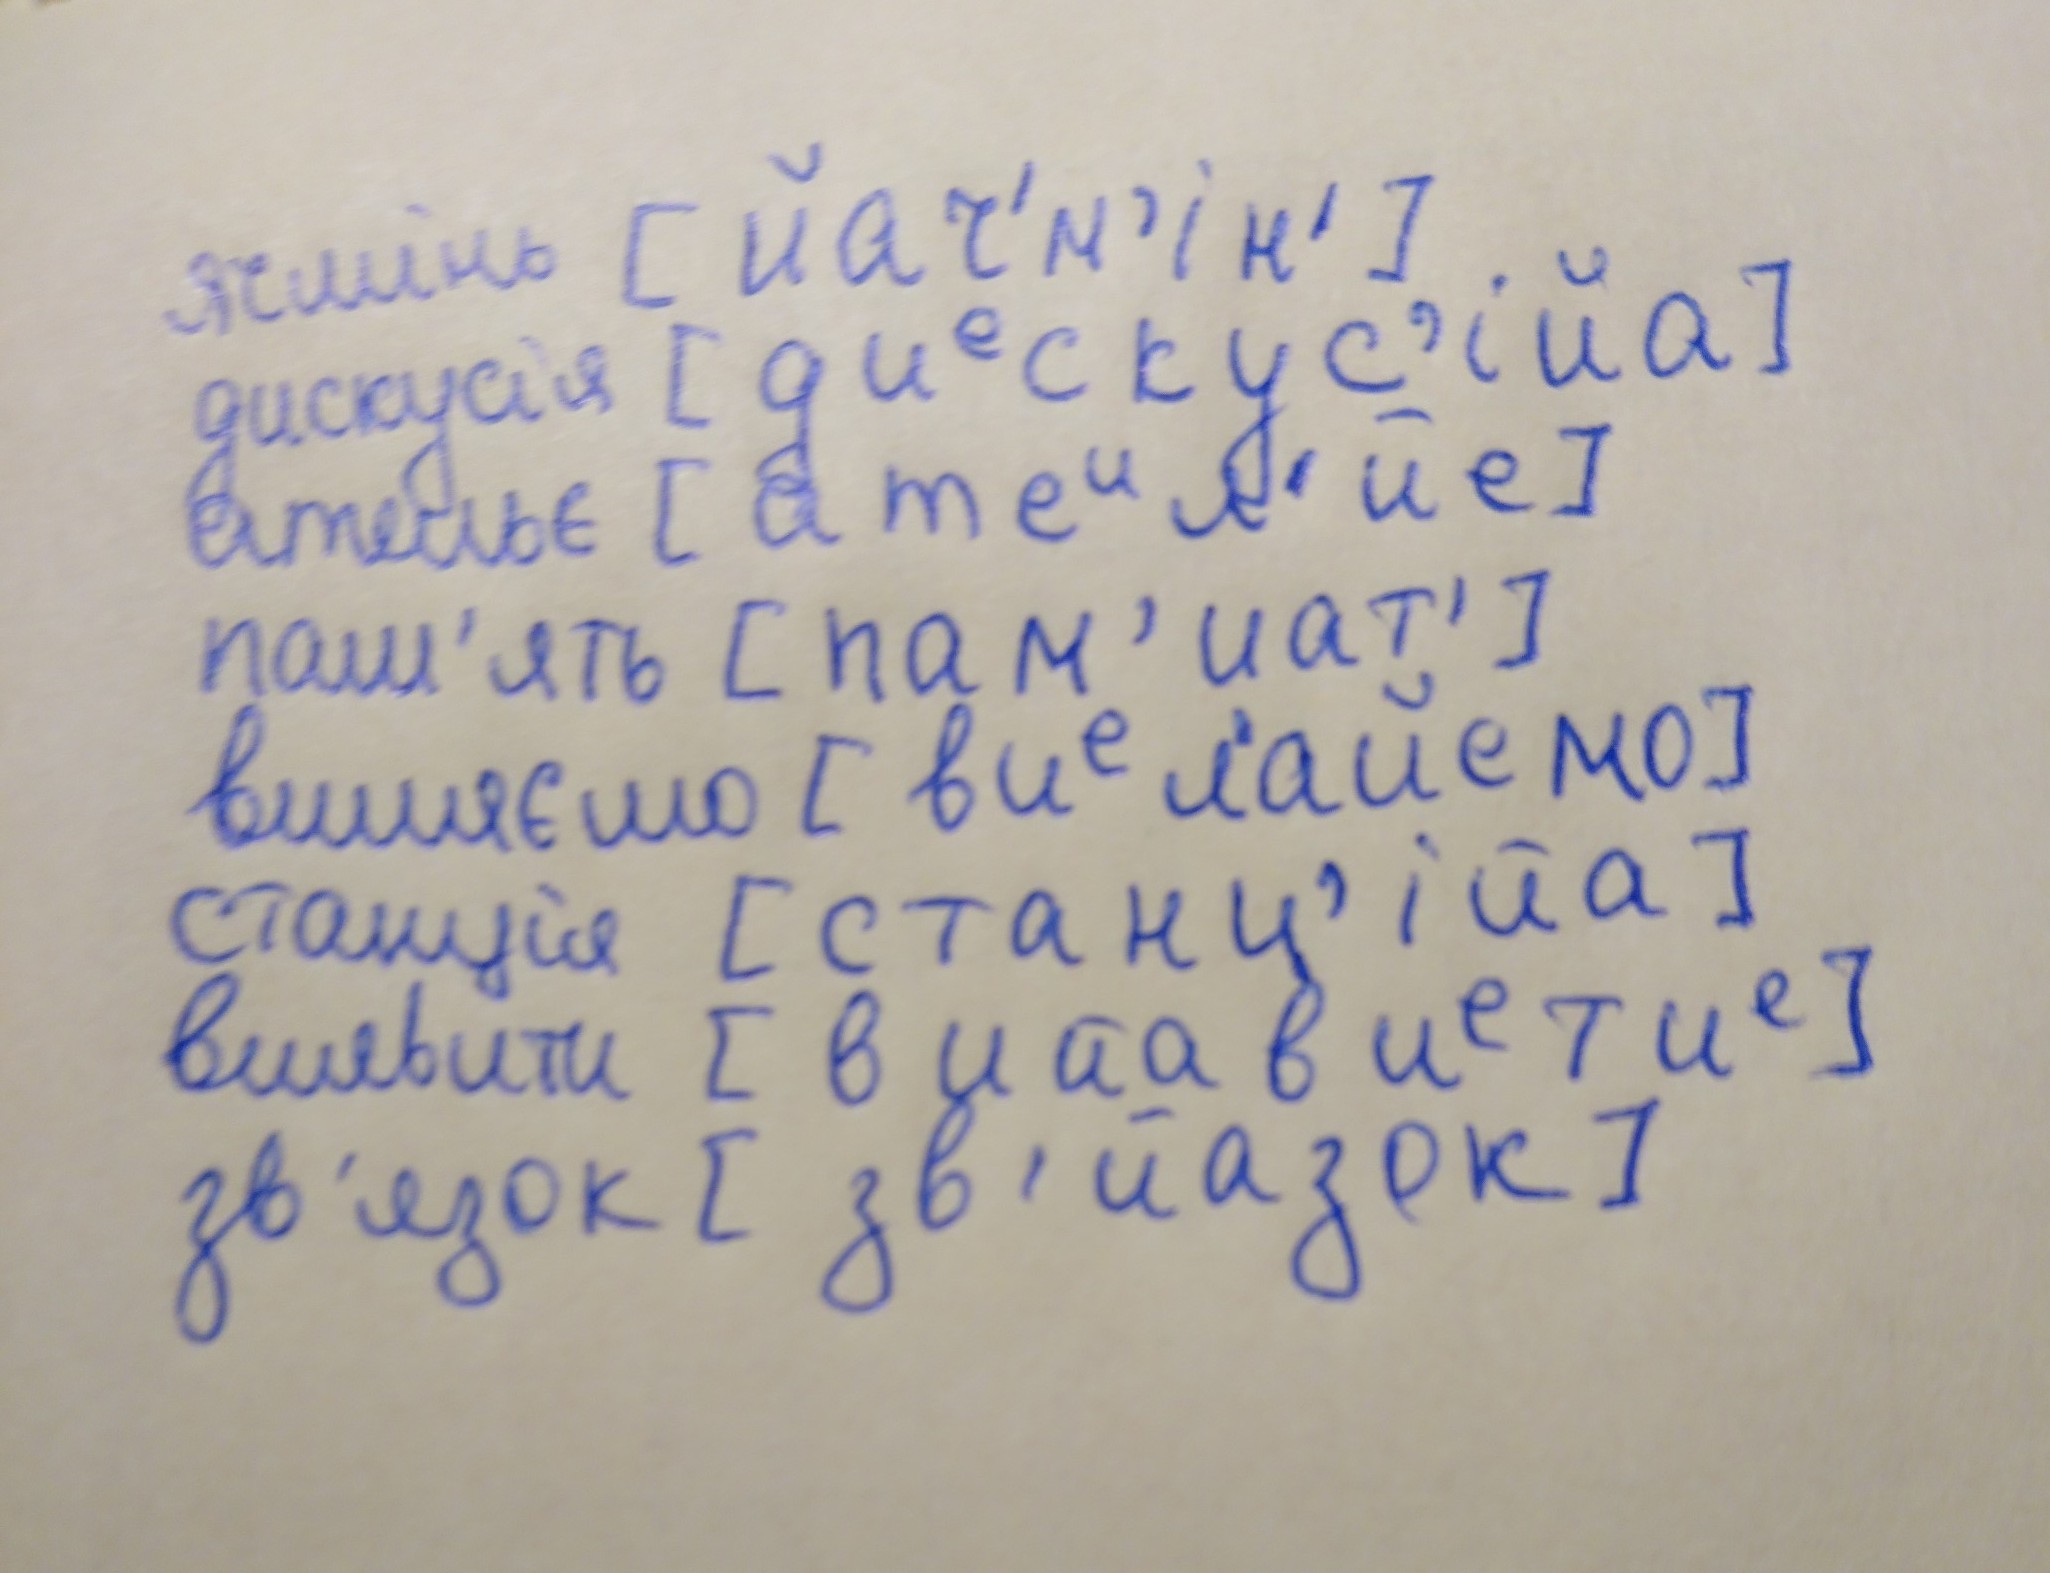 ячмінь [йач'м'ін']
дискусія [диᵉскус'ійа]
ательє [атеᵘл'йе]
пам'ять [пам'иат']
виляємо [виᵉл'айемо]
станція [станц'ійа]
виявити [вийавиᵉтиᵉ]
зв'язок [зв'йазок]